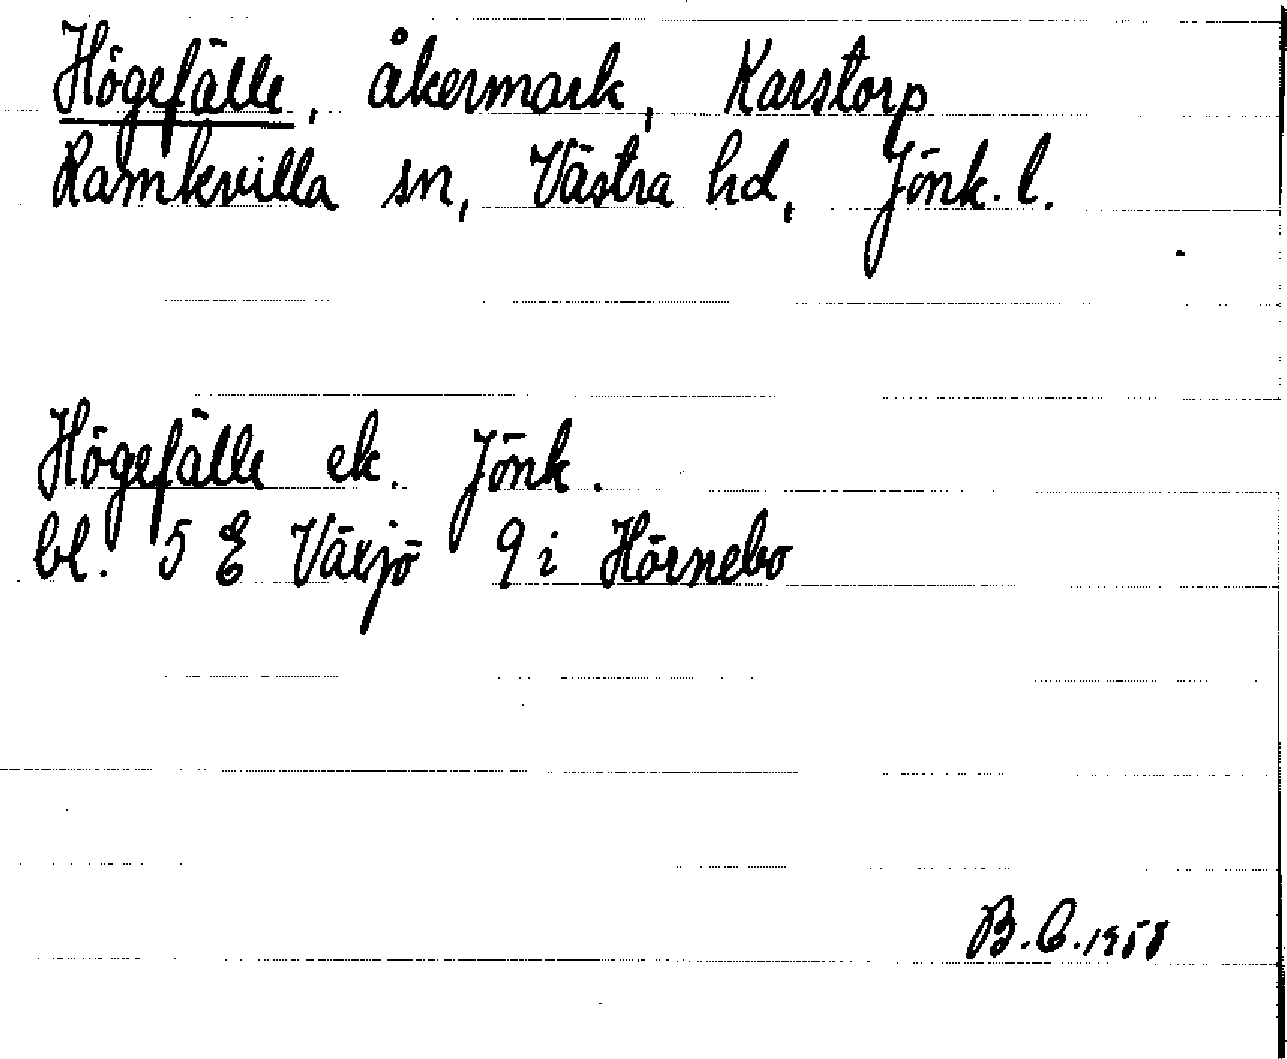 Högefälle, åkermark, Karstorp
Ramkvilla sn, Västra hd, Jönk. l.
Högefälle ek. Jönk.
bl. 5 E Växjö 9 i Hörnebo
B.C. 1958